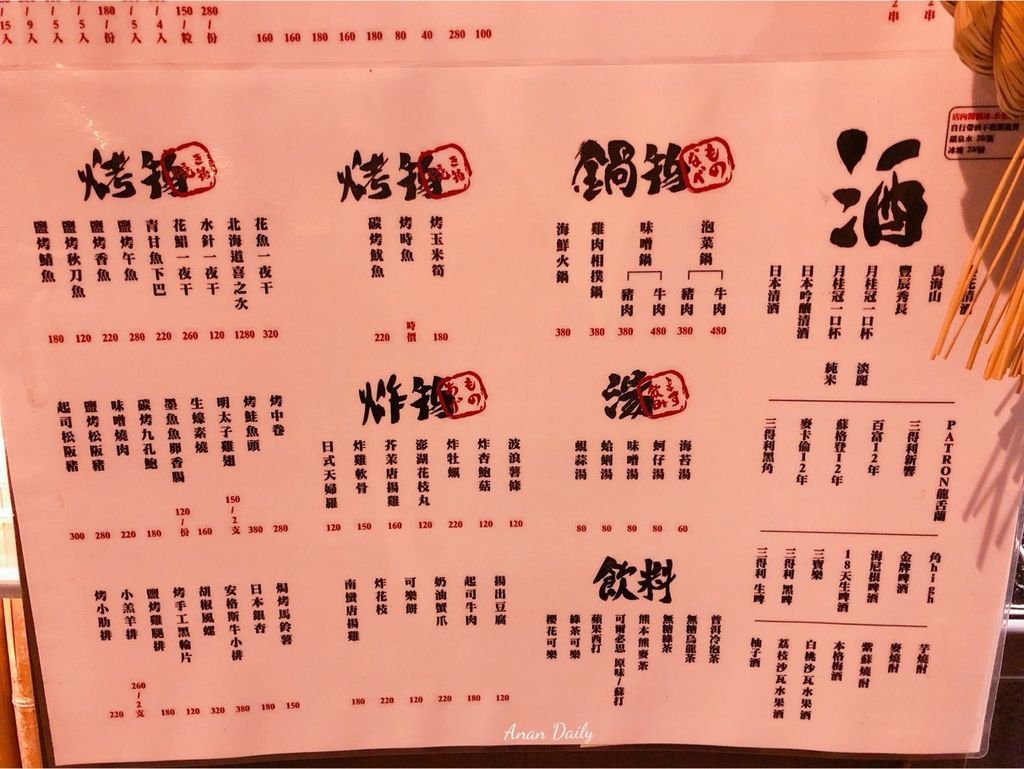 15入 9入 5入 5入 180/份 5入 4入 150/粒 280/份
160 160 180 160 180 80 40 280 100
2串 2串
酒
自行帶酒不收開瓶費
礦泉水 20/瓶
冰塊 20/桶
鳥海山
豐辰秀長
月桂冠一口杯 淡麗
月桂冠一口杯 純米
日本吟釀清酒
日本清酒
PATRON龍舌蘭
三得利新響
百富12年
蘇格登12年
麥卡倫12年
三得利黑角
角high
金牌啤酒
海尼根啤酒
18天生啤酒
三寶樂
三得利 黑啤
三得利 生啤
芋燒酎
麥燒酎
紫蘇燒酎
本格梅酒
白桃沙瓦水果酒
荔枝沙瓦水果酒
柚子酒
鍋物 ものなべ
泡菜鍋
牛肉 480
豬肉 380
味噌鍋
牛肉 480
豬肉 380
雞肉相撲鍋 380
海鮮火鍋 380
湯
海苔湯 60
蚵仔湯 80
味噌湯 80
蛤蜊湯 80
蜆蒜湯 80
飲料
普洱冷泡茶
無糖烏龍茶
無糖綠茶
熊本熊麥茶
可爾必思 原味/蘇打
蘋果西打
綠茶可樂
櫻花可樂
烤物
烤玉米筍 180
烤時魚 時價
碳烤魷魚 220
炸物
波浪薯條 120
炸杏鮑菇 120
炸牡蠣 220
澎湖花枝丸 120
芥茉唐揚雞 160
炸雞軟骨 150
日式天婦羅 120
揚出豆腐 120
起司牛肉 180
奶油蟹爪 220
可樂餅 120
炸花枝 220
南蠻唐揚雞 180
烤物
花魚一夜干 320
北海道喜之次 1280
水針一夜干 120
花鯧一夜干 260
青甘魚下巴 220
鹽烤午魚 280
鹽烤香魚 220
鹽烤秋刀魚 120
鹽烤鯖魚 180
烤中卷 280
烤鮭魚頭 380
明太子雞翅 150/2支
生蠔素燒 160
墨魚魚卵香腸 120/份
碳烤九孔鮑 180
味噌燒肉 220
鹽烤松阪豬 280
起司松阪豬 300
焗烤馬鈴薯 150
日本銀杏 180
安格斯牛小排 380
胡椒風螺 320
烤手工黑輪片 120
鹽烤雞腿排 180
小羔羊排 260/2支
烤小肋排 220
Anan Daily